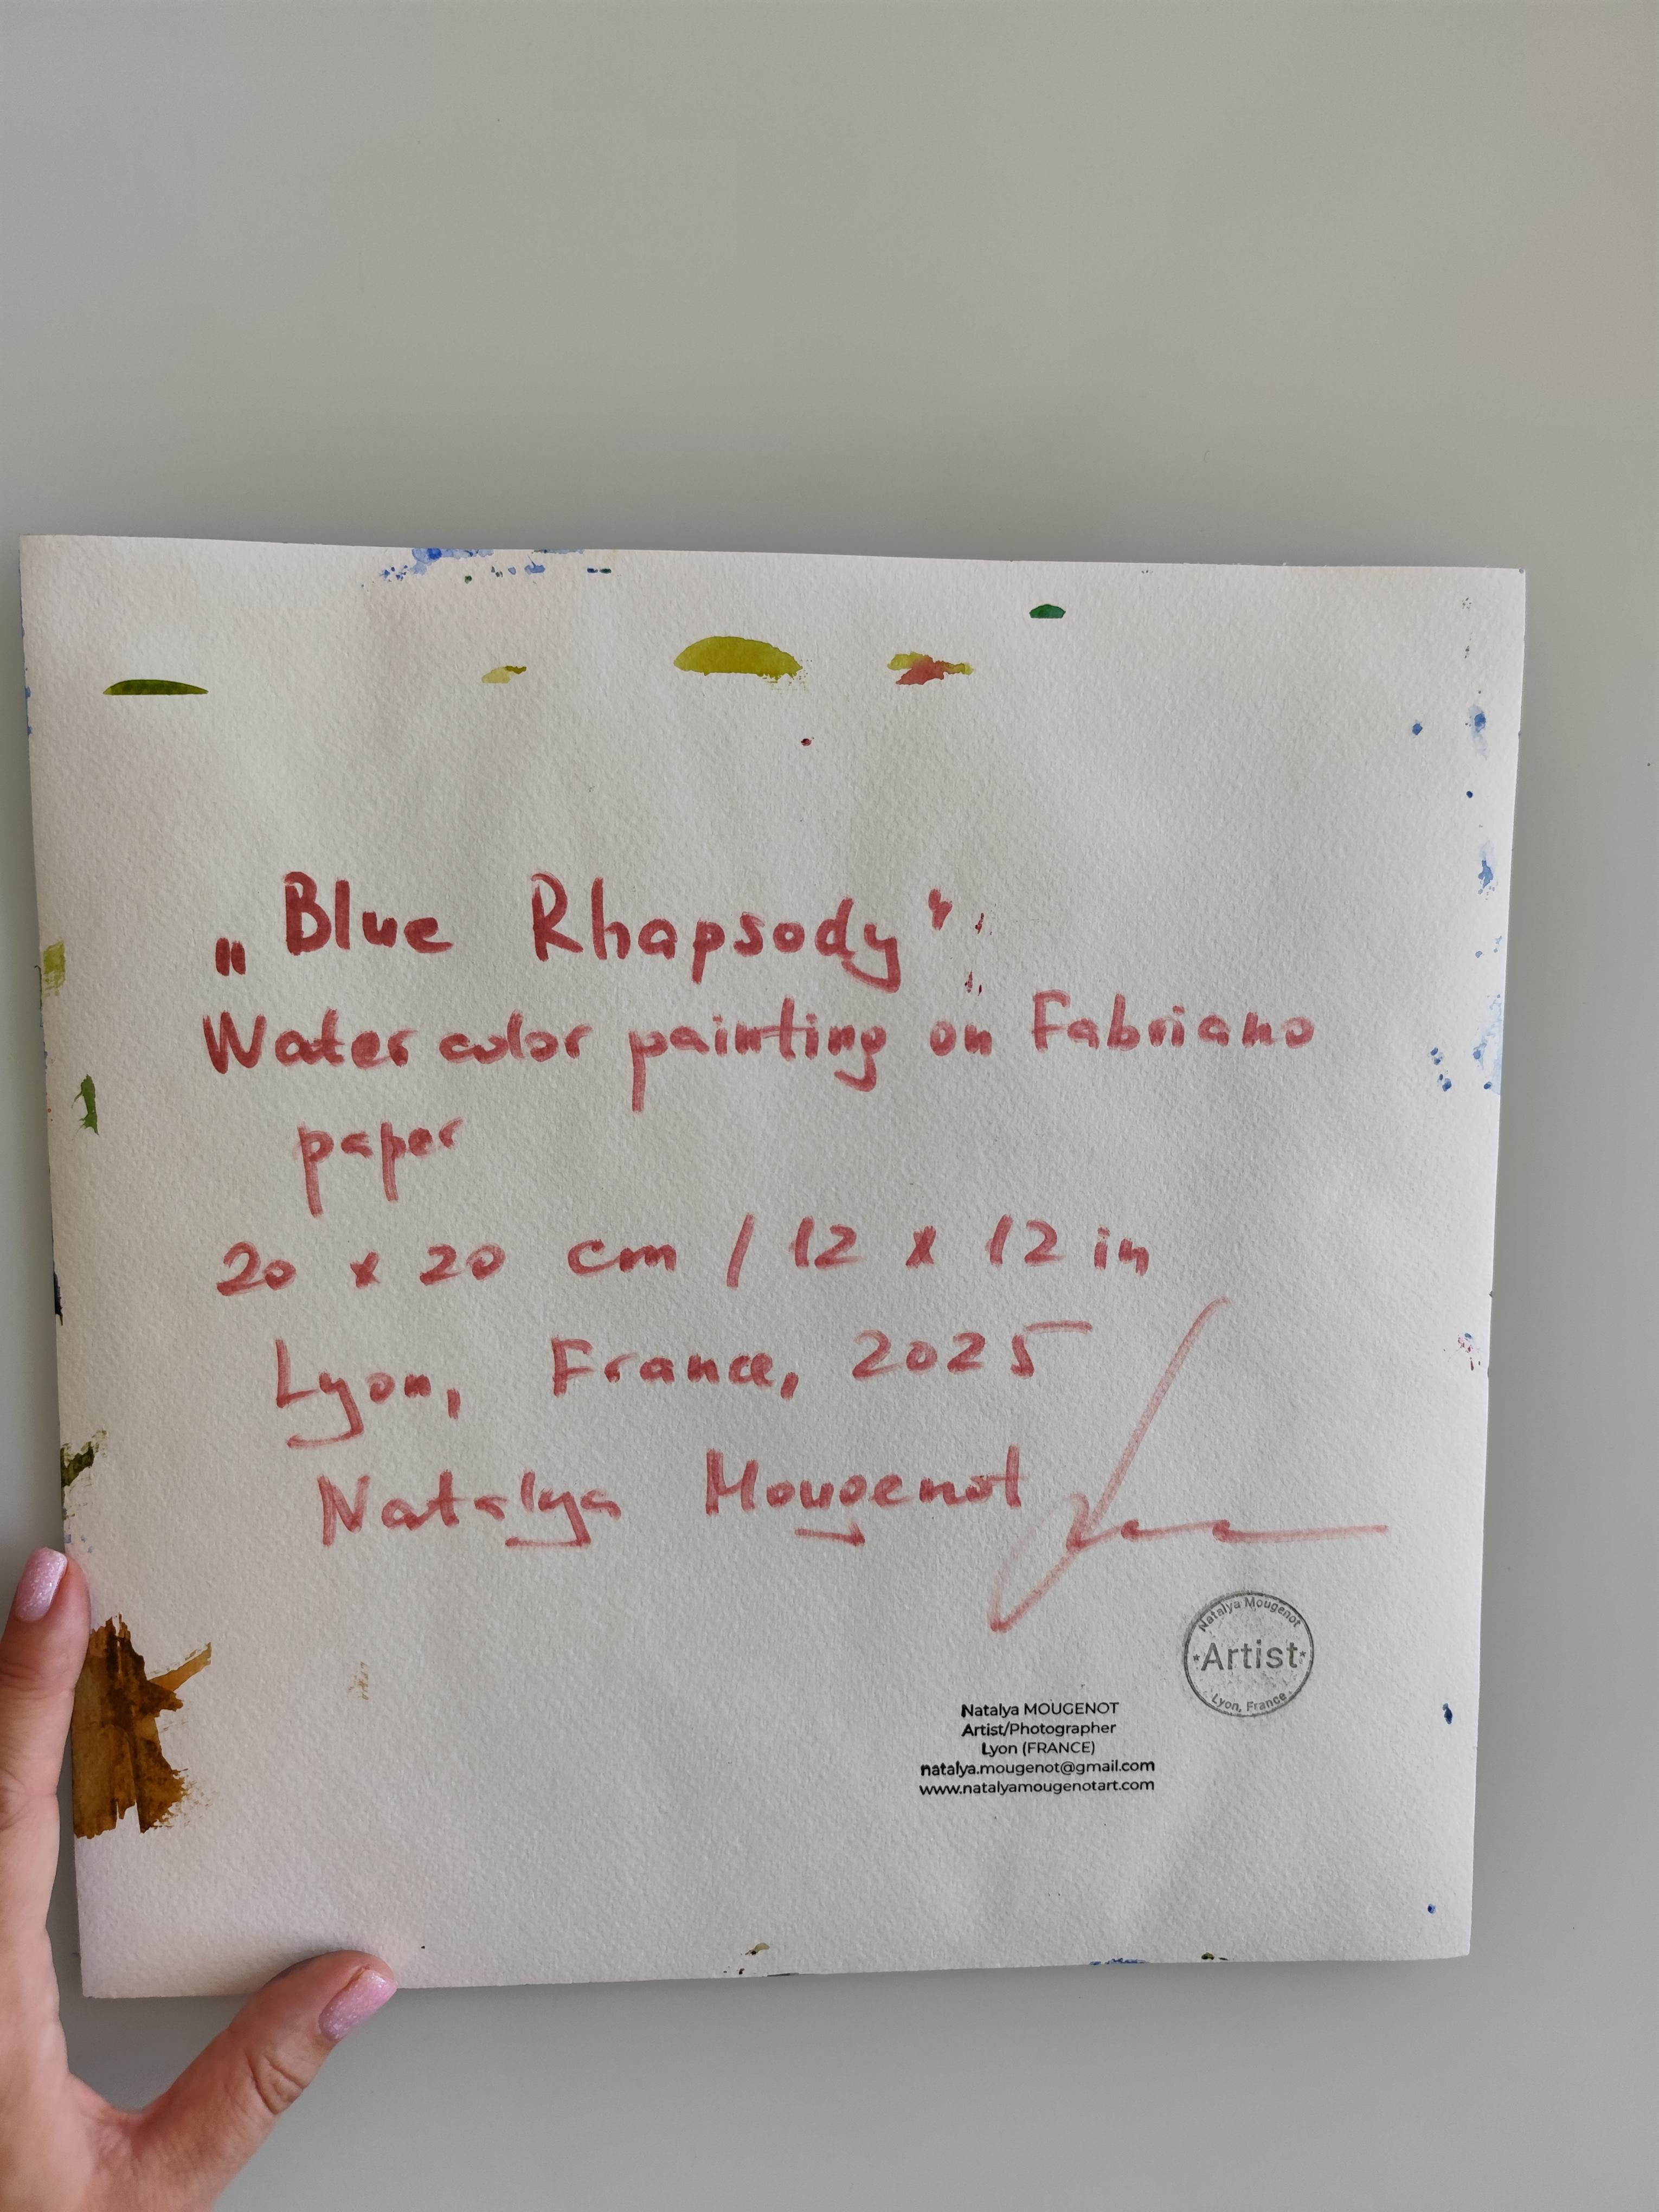 „Blue Rhapsody”
Watercolor painting on Fabriano
paper
20 x 20 cm / 12 x 12 in
Lyon, France, 2025
Natalya Mougenot
Natalya Mougenot
*Artist*
Lyon, France
Natalya MOUGENOT
Artist/Photographer
Lyon (FRANCE)
natalya.mougenot@gmail.com
www.natalyamougenotart.com